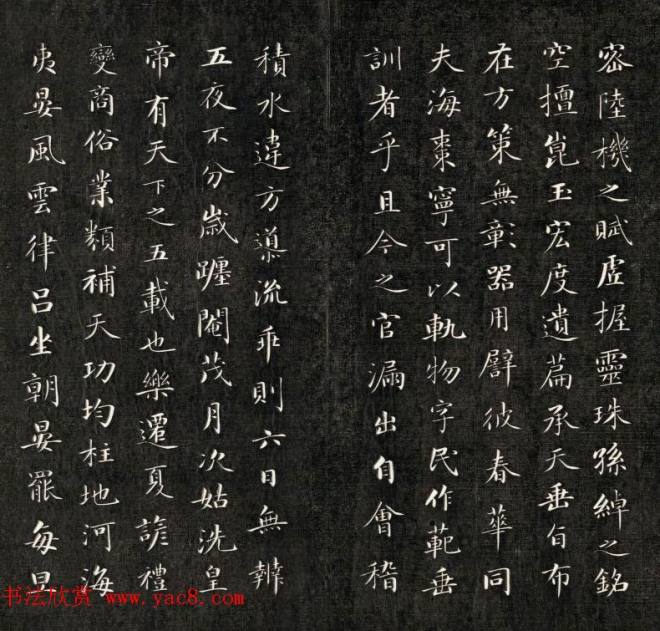 密陸機之賦虛握靈珠孫綽之銘
空擅崑玉宏度遺篇承天垂旨布
在方策無彰器用譬彼春華同
夫海棗寧可以軌物字民作範垂
訓者乎且今之官漏出自會稽
積水違方導流乖則六日無辨
五夜不分歲躔閹茂月次姑洗皇
帝有天下之五載也樂遷夏諺禮
變商俗業類補天功均柱地河海
夷晏風雲律呂坐朝晏罷每旦
书法欣赏 www.yac8.com